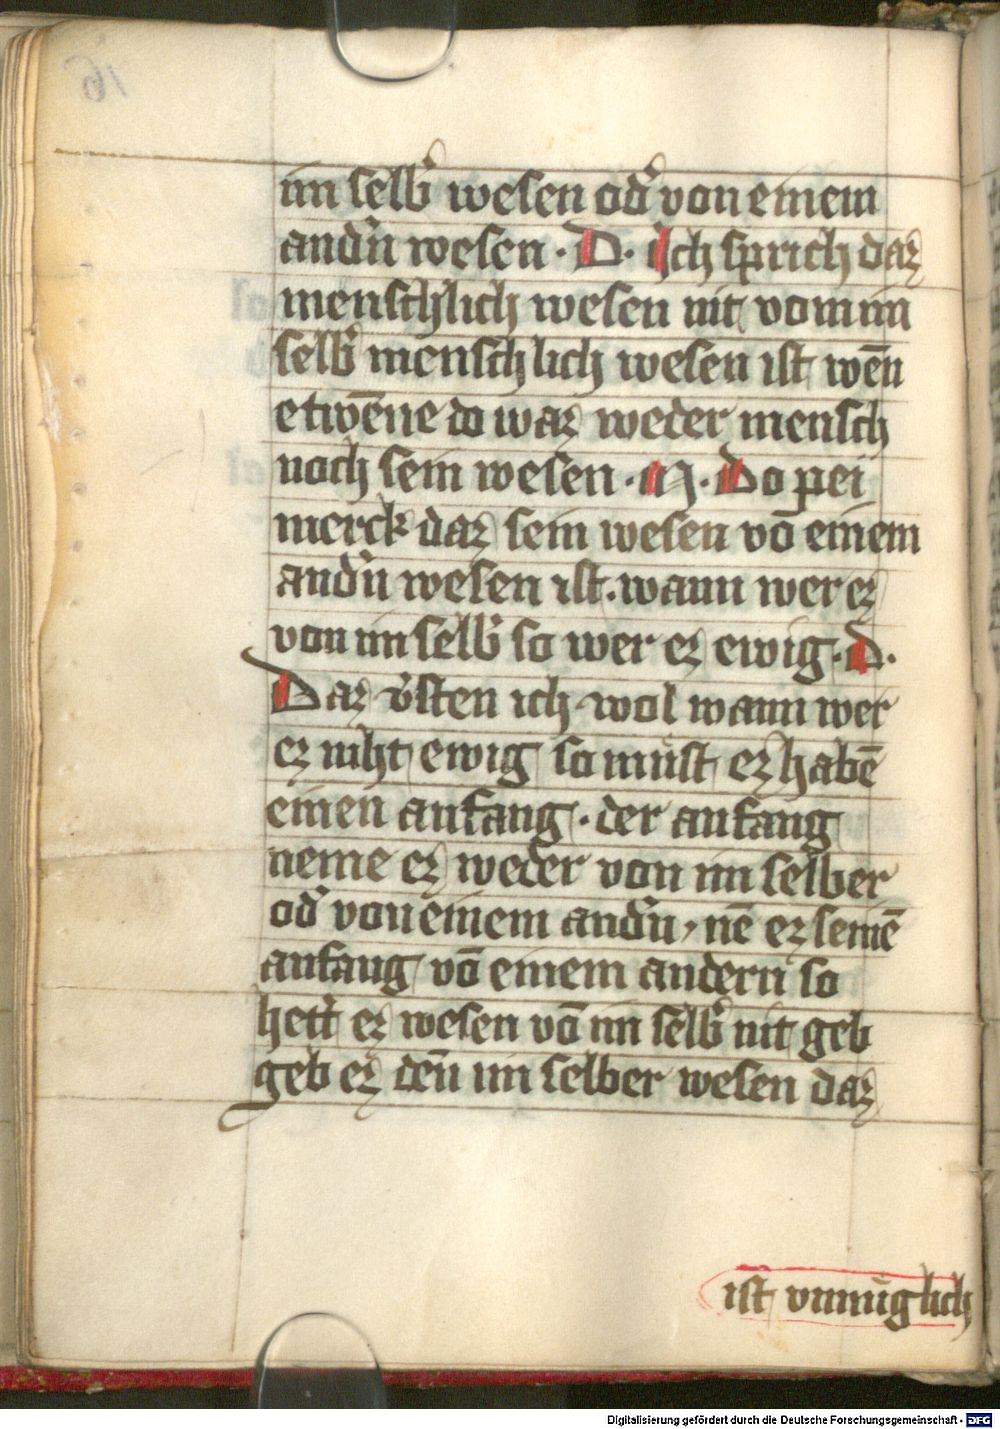 im selb᷑ wesen od᷑ von einem
and᷑n wesen · D · Ich sprich daz
menschlich wesen nit vom im
selb᷑ menschlich wesen ist wēn
etwēne do waz weder mensch
noch sein wesen · M · Do pei
merck daz sein wesen vō einem
and᷑n wesen ist · wann wer ez
von im selb᷑ so wer ez ewig · D ·
Daz v᷑sten ich wol wann wer
ez niht ewig so muͤst ez habē
einen anfang · der anfang
neme ez weder von im selber
od᷑ von einem and᷑n, nē ez seinē
anfang vō einem andern so
hett ez wesen vō im selb᷑ nit geb
geb ez dēn im selber wesen daz
ist vnmuͤglich
Digitalisierung gefördert durch die Deutsche Forschungsgemeinschaft - DFG